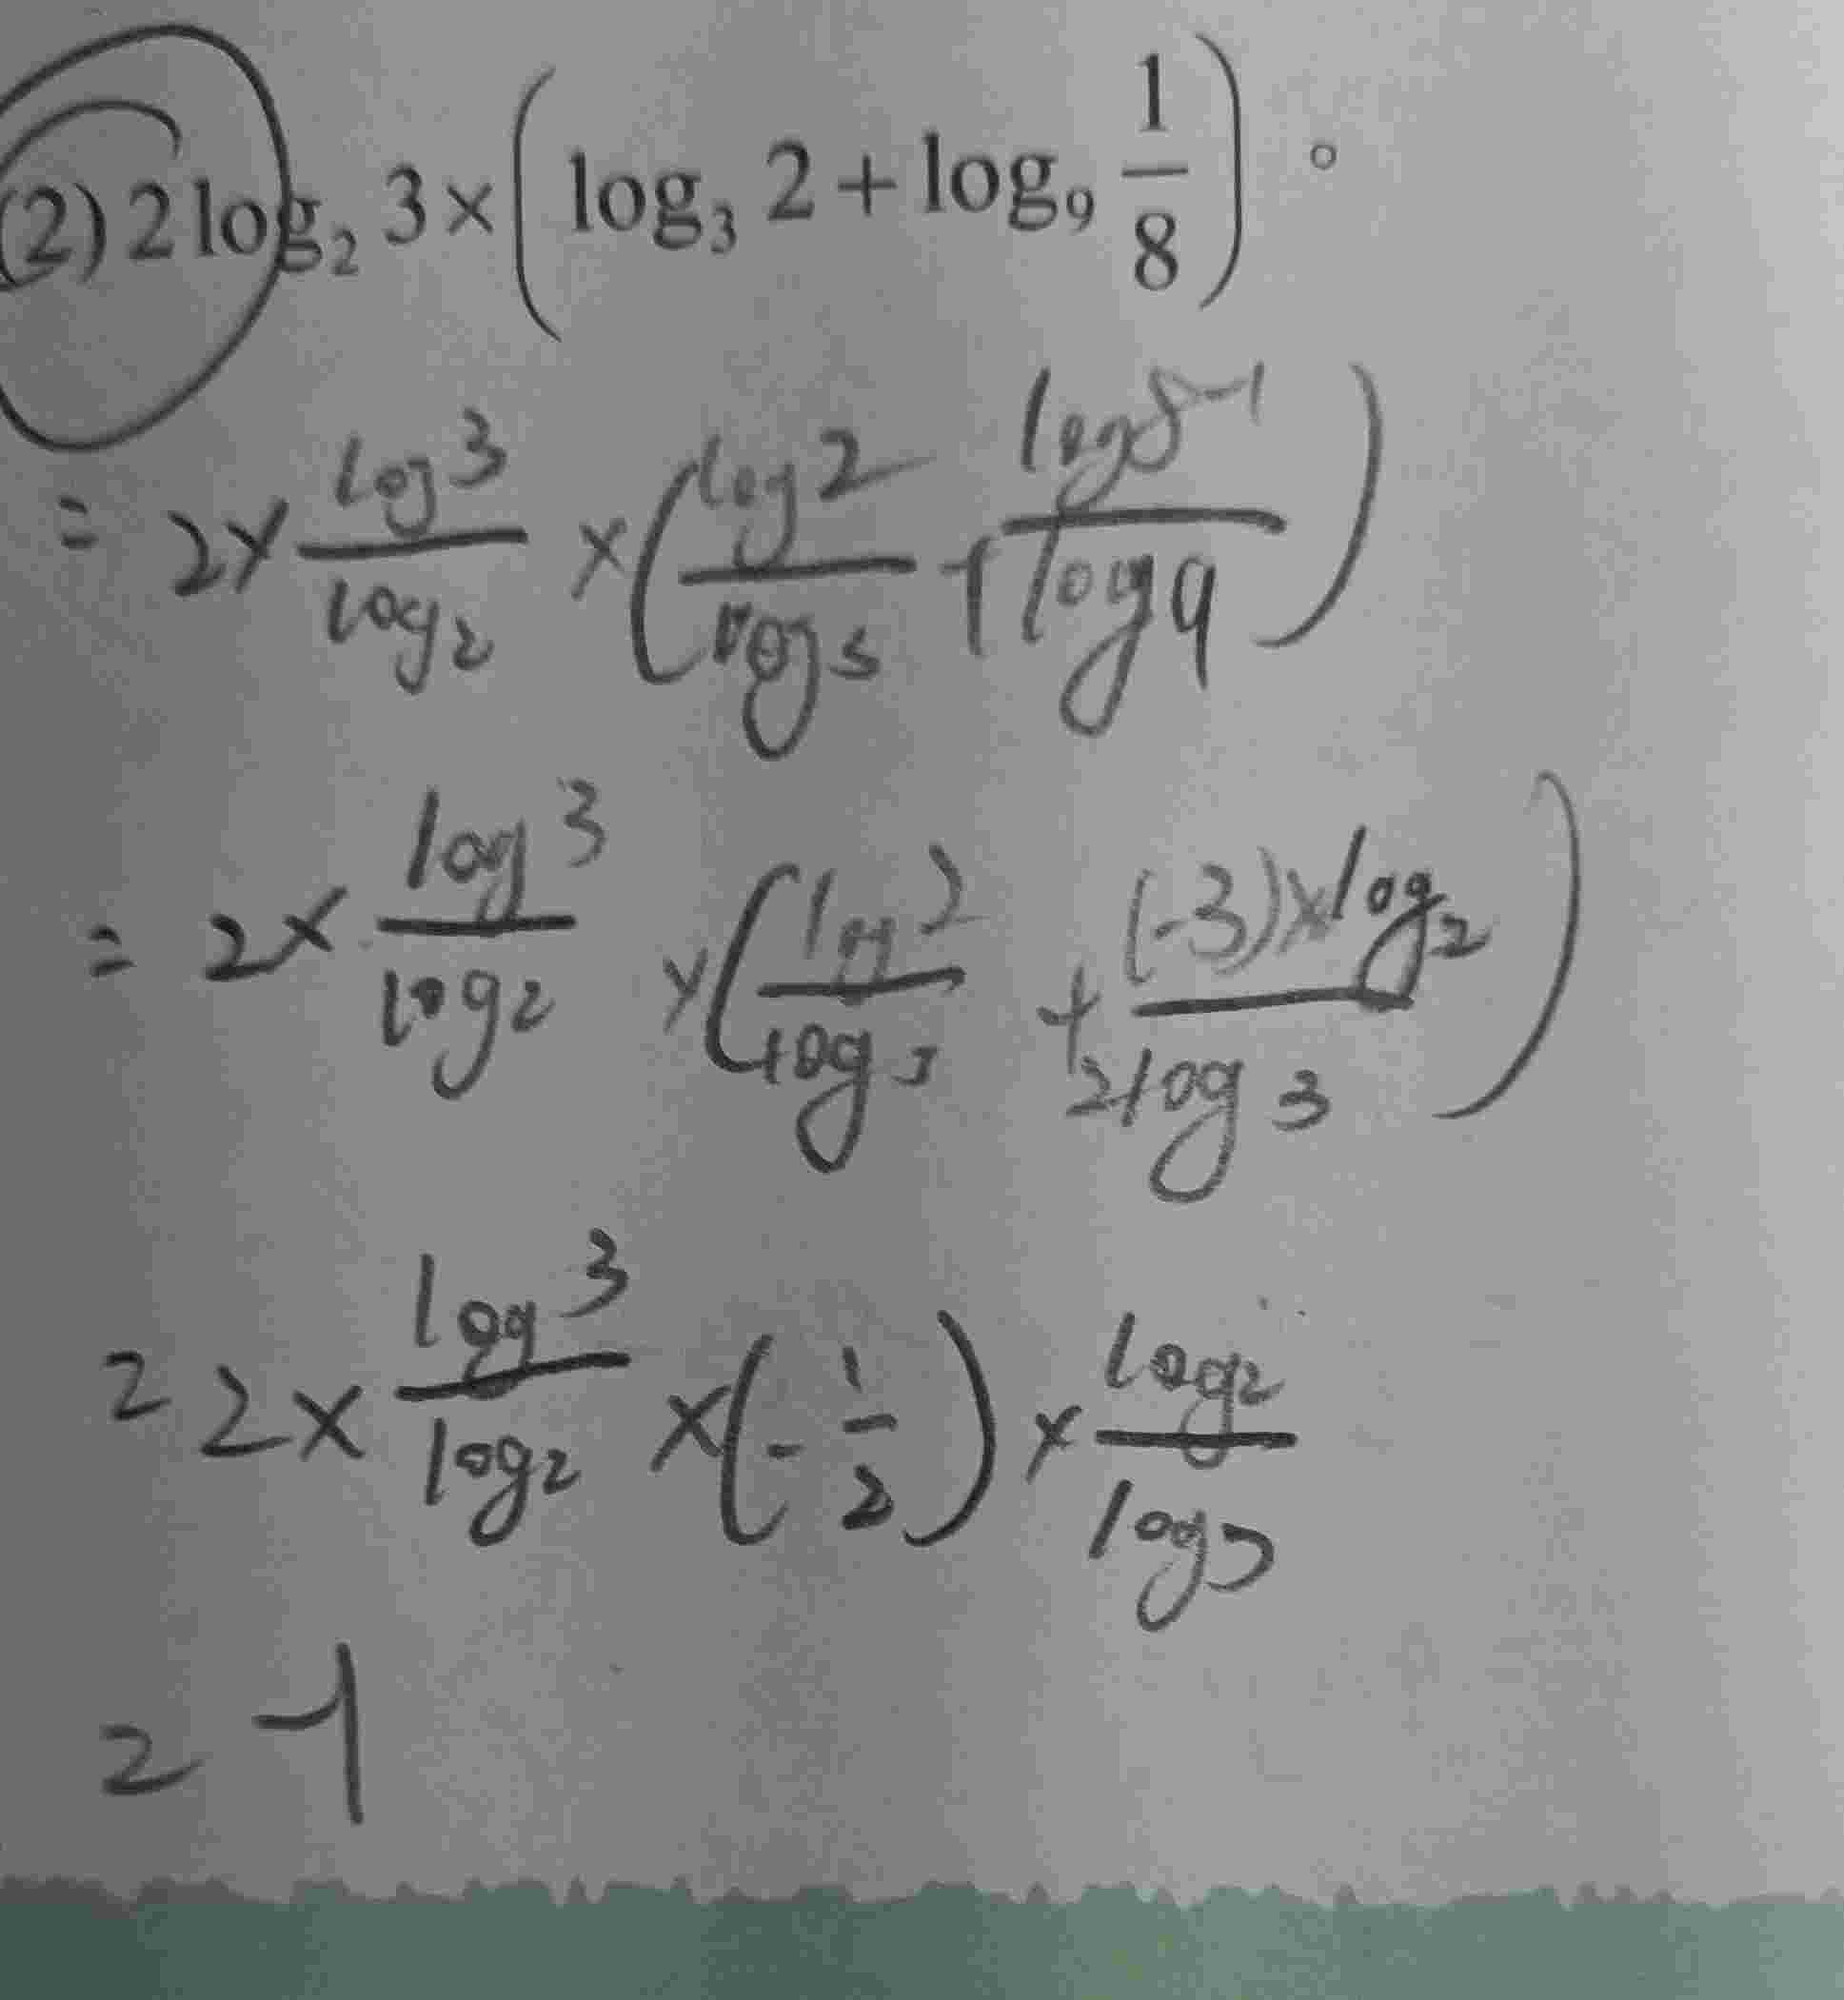 (2) 2 log₂ 3 × ( log₃ 2 + log₉ 1/8 ) 。
= 2 × log 3 / log 2 × ( log 2 / log 3 + log 8⁻¹ / log 9 )
= 2 × log 3 / log 2 × ( log 2 / log 3 + (-3) × log 2 / 2 log 3 )
= 2 × log 3 / log 2 × ( - 1/2 ) × log 2 / log 3
= -1